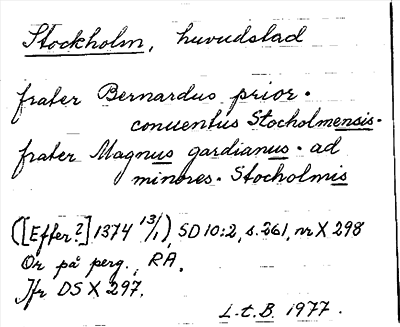 Stockholm, huvudstad
frater Bernardus prior.
conuentus Stocholmensis.
frater Magnus gardianus. ad
minores. Stocholmis
([Efter?] 1374 13/1), SD 10:2, s. 261, nr X 298
Or på perg., RA.
Jfr DS X 297.
L.t.B. 1977.